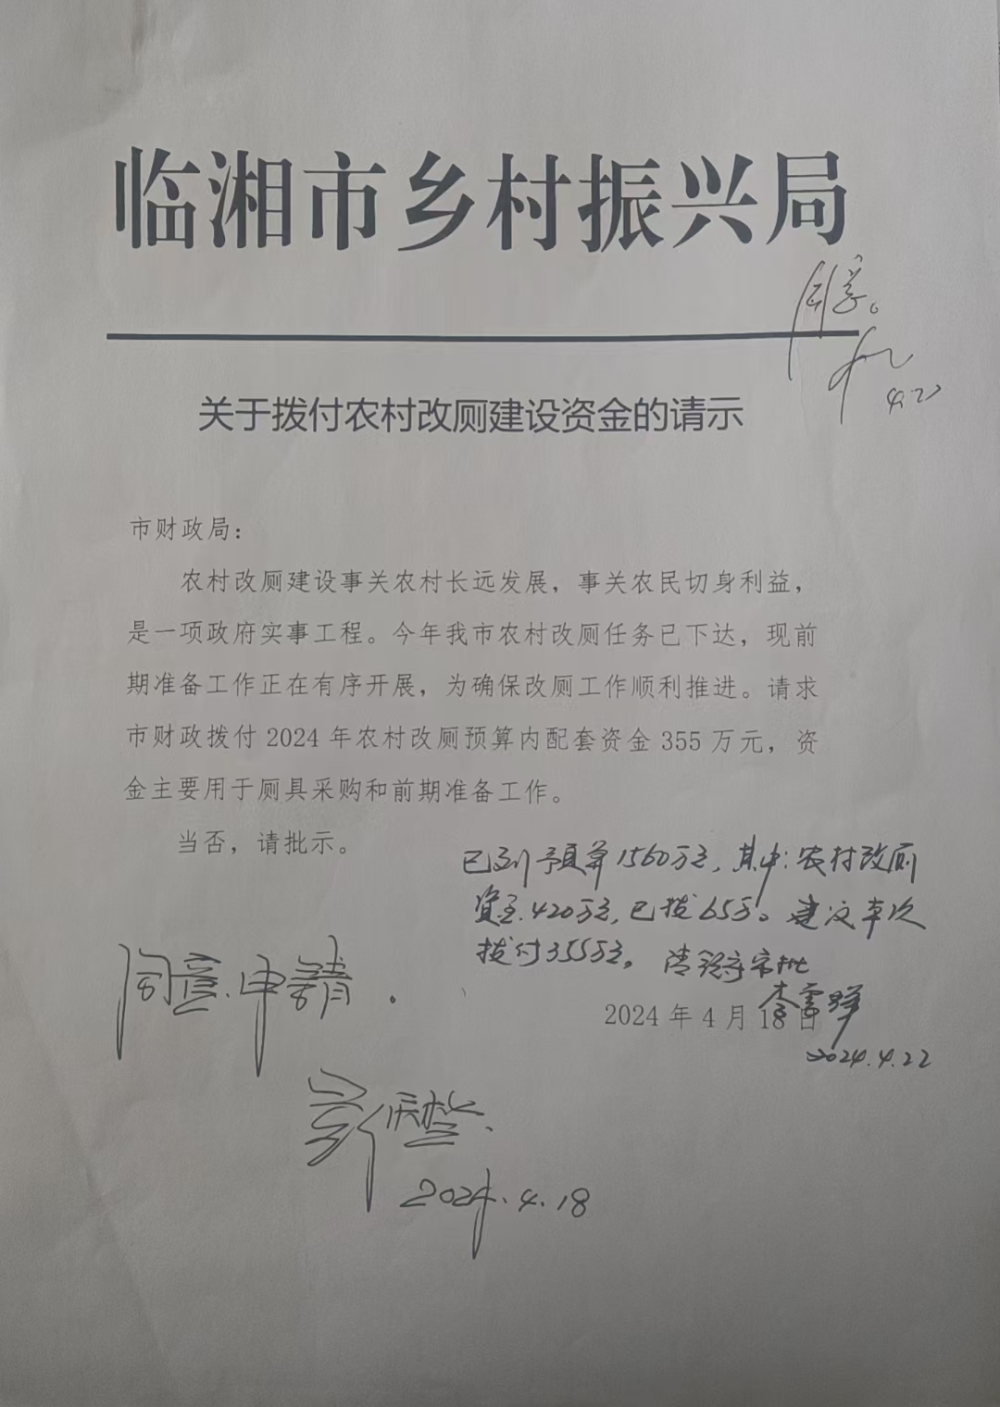 临湘市乡村振兴局
同意。
4.22
关于拨付农村改厕建设资金的请示
市财政局：
农村改厕建设事关农村长远发展，事关农民切身利益，
是一项政府实事工程。今年我市农村改厕任务已下达，现前
期准备工作正在有序开展，为确保改厕工作顺利推进。请求
市财政拨付 2024 年农村改厕预算内配套资金 355 万元，资
金主要用于厕具采购和前期准备工作。
当否，请批示。
已列预算1560万元，其中：农村改厕
资金420万元，已拨65万。建议本次
拨付355万元。请 审批
2024 年 4 月 18 日
2024.4.22
同意申请.
2024.4.18